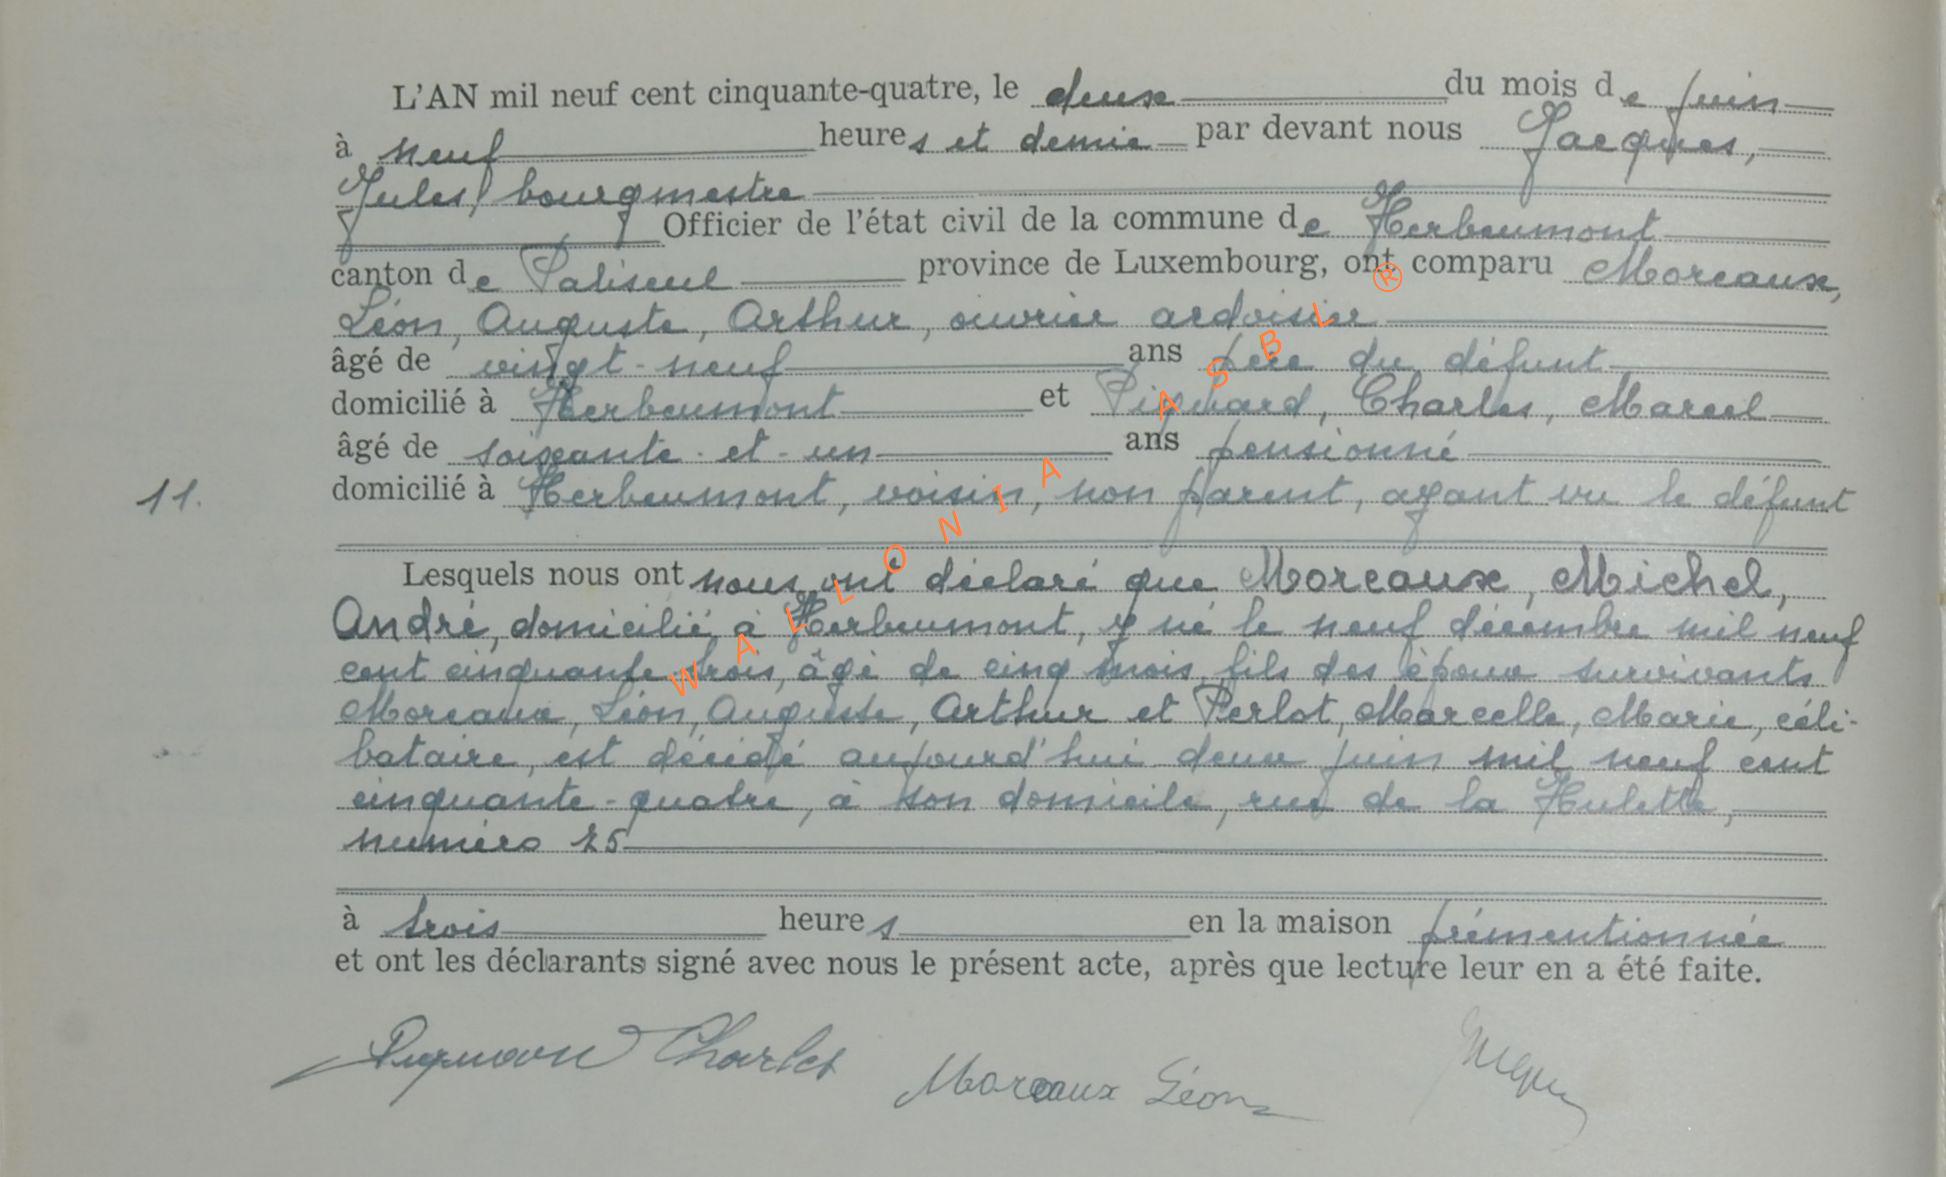 L'AN mil neuf cent cinquante-quatre, le deux du mois de juin
à neuf heures et demie par devant nous Jacques,
Jules, bourgmestre
Officier de l'état civil de la commune de Herbeumont
canton de Paliseul province de Luxembourg, ont comparu Moreaux,
Léon, Auguste, Arthur, ouvrier ardoisier
âgé de vingt-neuf ans père du défunt
domicilié à Herbeumont et Pignard, Charles, Marcel
âgé de soixante-et-un ans pensionné
11. domicilié à Herbeumont, voisin, non parent, ayant vu le défunt
Lesquels nous ont nous ont déclaré que Moreaux, Michel,
André, domicilié à Herbeumont, y né le neuf décembre mil neuf
cent cinquante-trois, âgé de cinq mois, fils des époux survivants
Moreaux, Léon, Auguste, Arthur et Perlot, Marcelle, Marie, céli-
bataire, est décédé aujourd'hui deux juin mil neuf cent
cinquante-quatre, à son domicile, rue de la Hulette,
numéro 25
à trois heures en la maison prémentionnée
et ont les déclarants signé avec nous le présent acte, après que lecture leur en a été faite.
Charles Moreaux Léon
WALLONIA ASBL ®